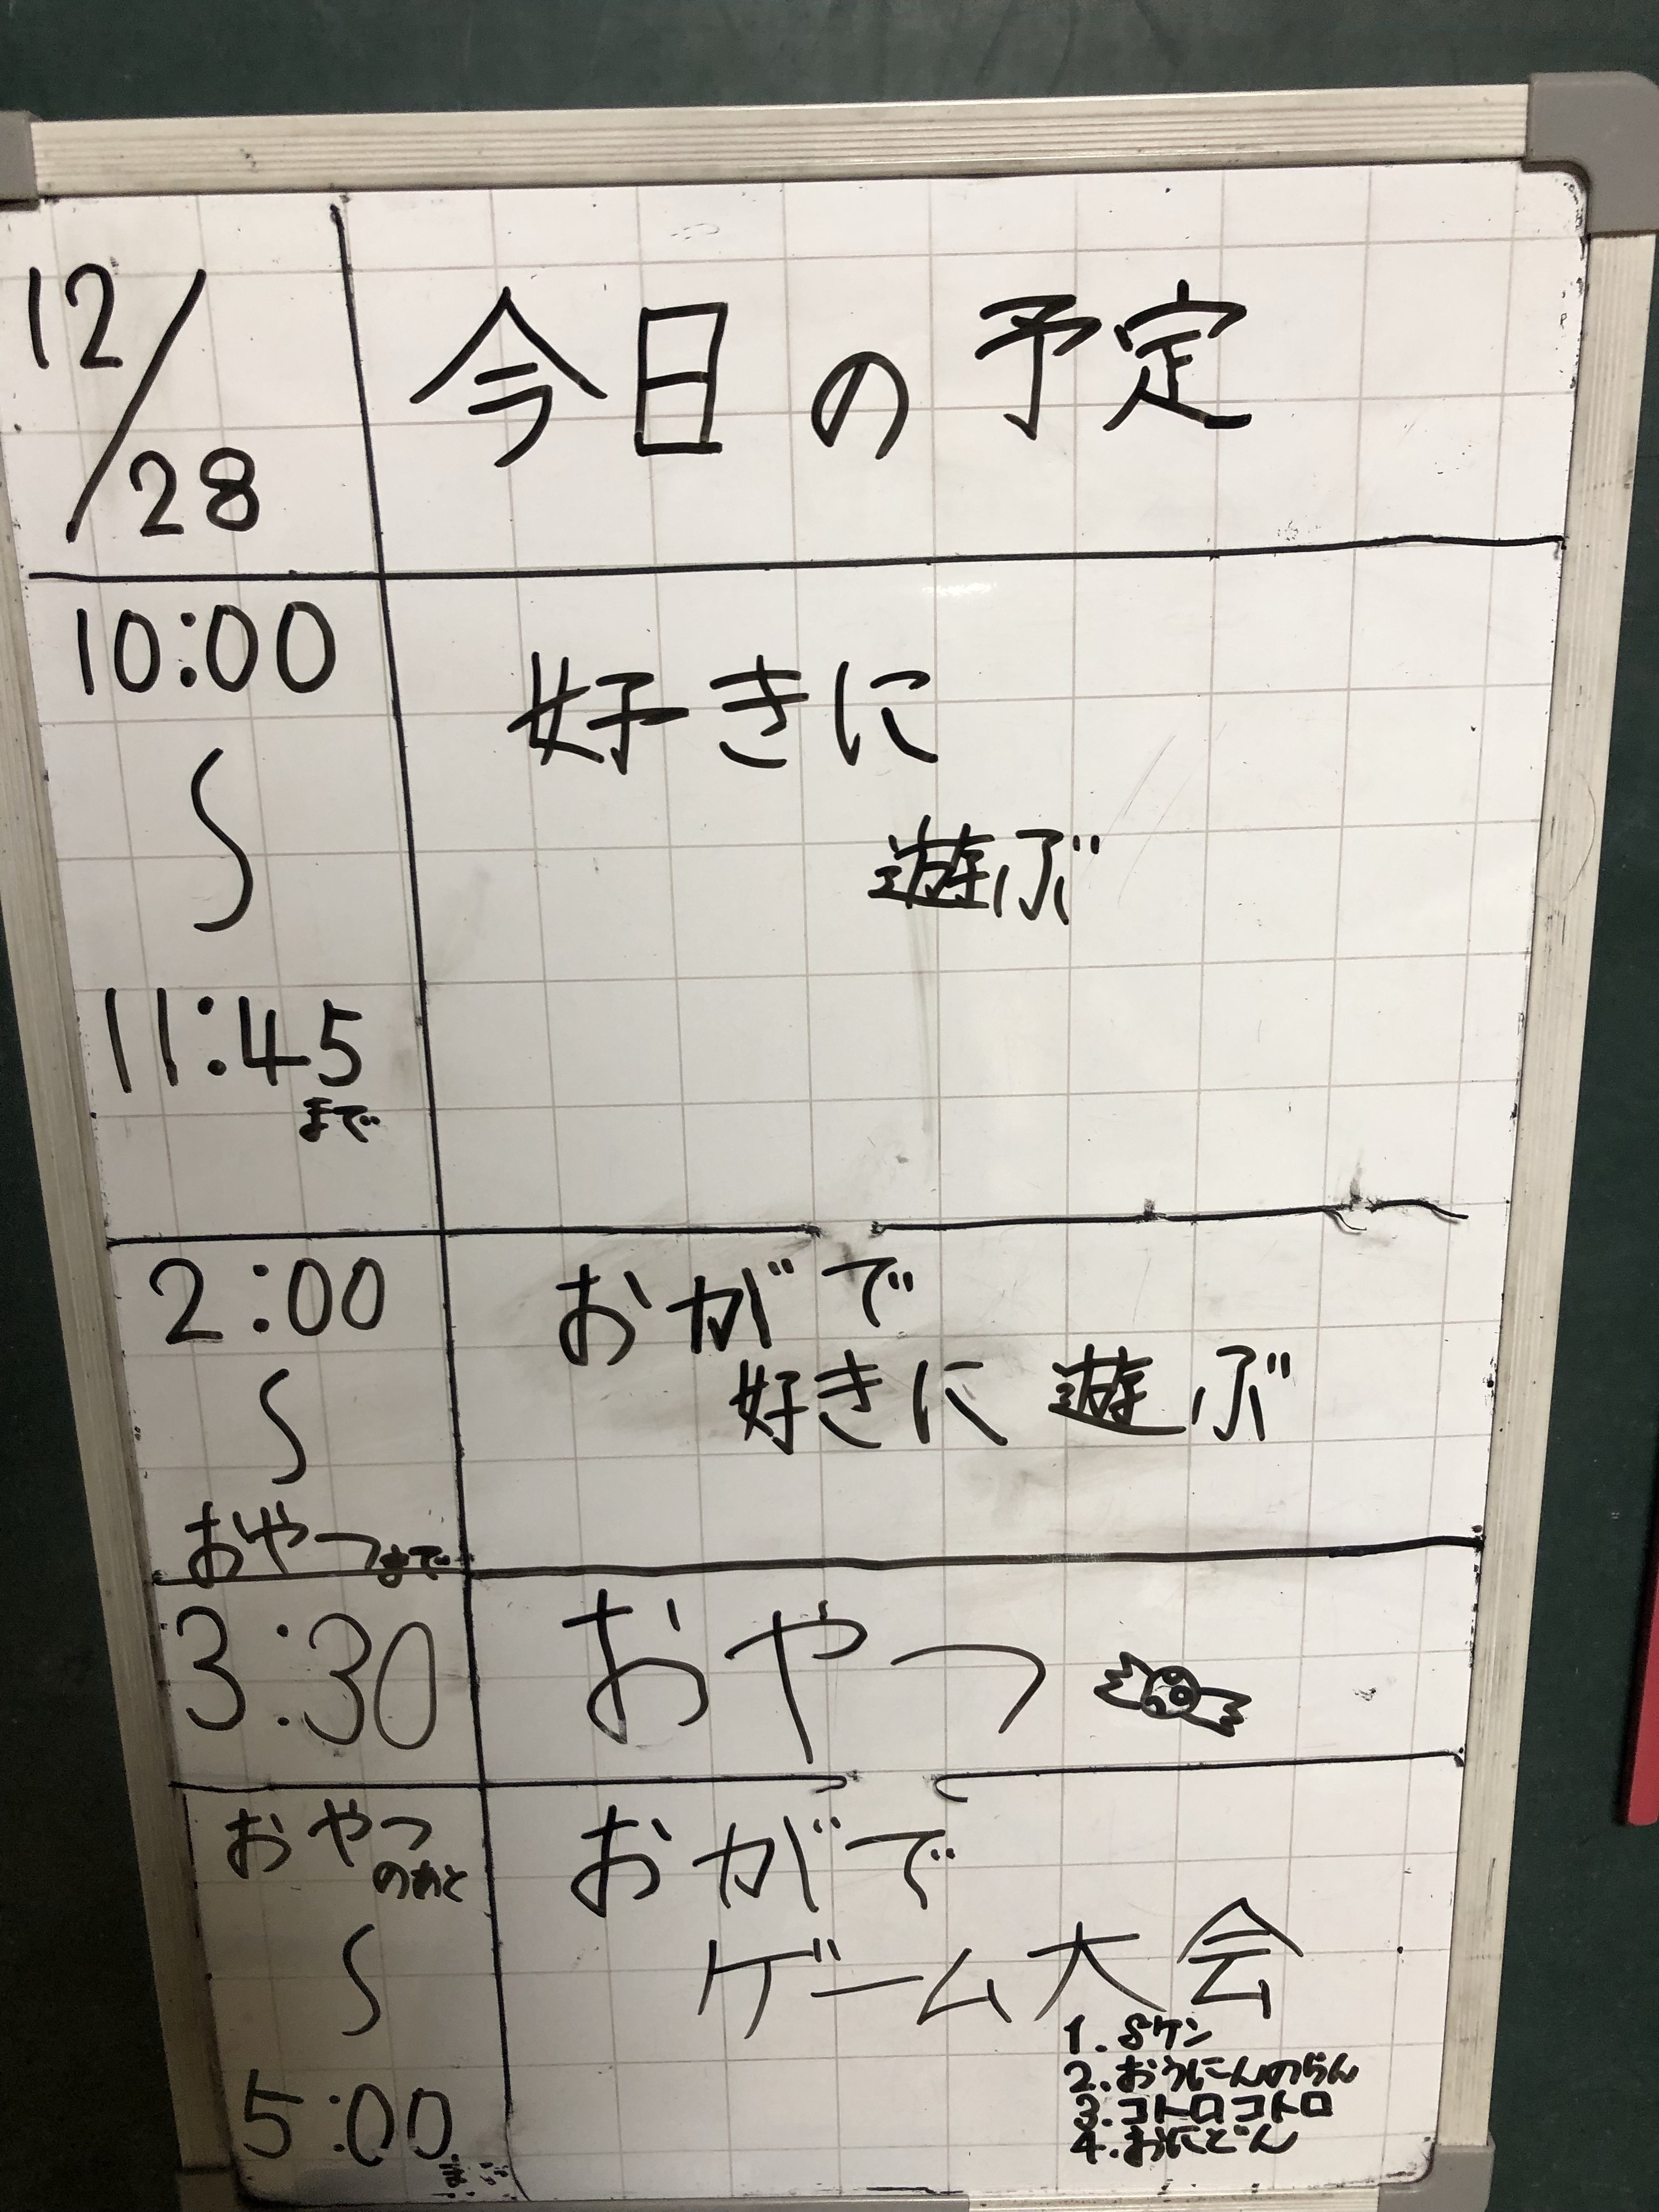 12/28
今日の予定
10:00
〜
11:45
まで
好きに
遊ぶ
2:00
〜
おやつまで
おがで
好きに遊ぶ
3:30
おやつ
おやつ
のあと
〜
5:00
おがで
ゲーム大会
1. Sケン
2. おうにんのらん
3. コトロコトロ
4. おにどん